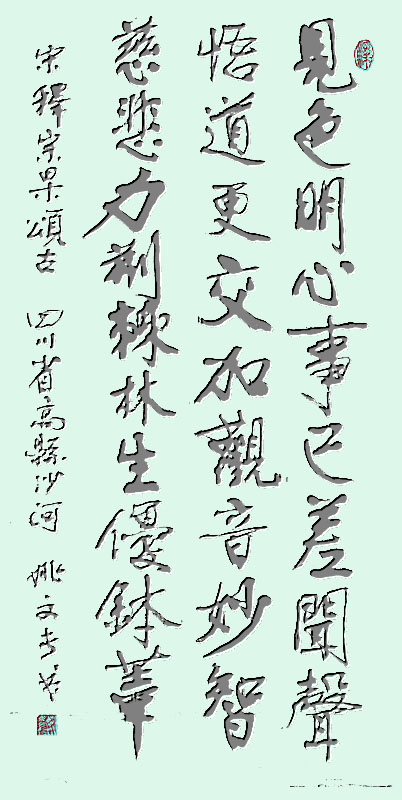 見色明心事已差聞聲
悟道更交加觀音妙智
慈悲力荊棘林生優鉢華
宋釋宗杲頌古 四川省高縣沙河 姚文